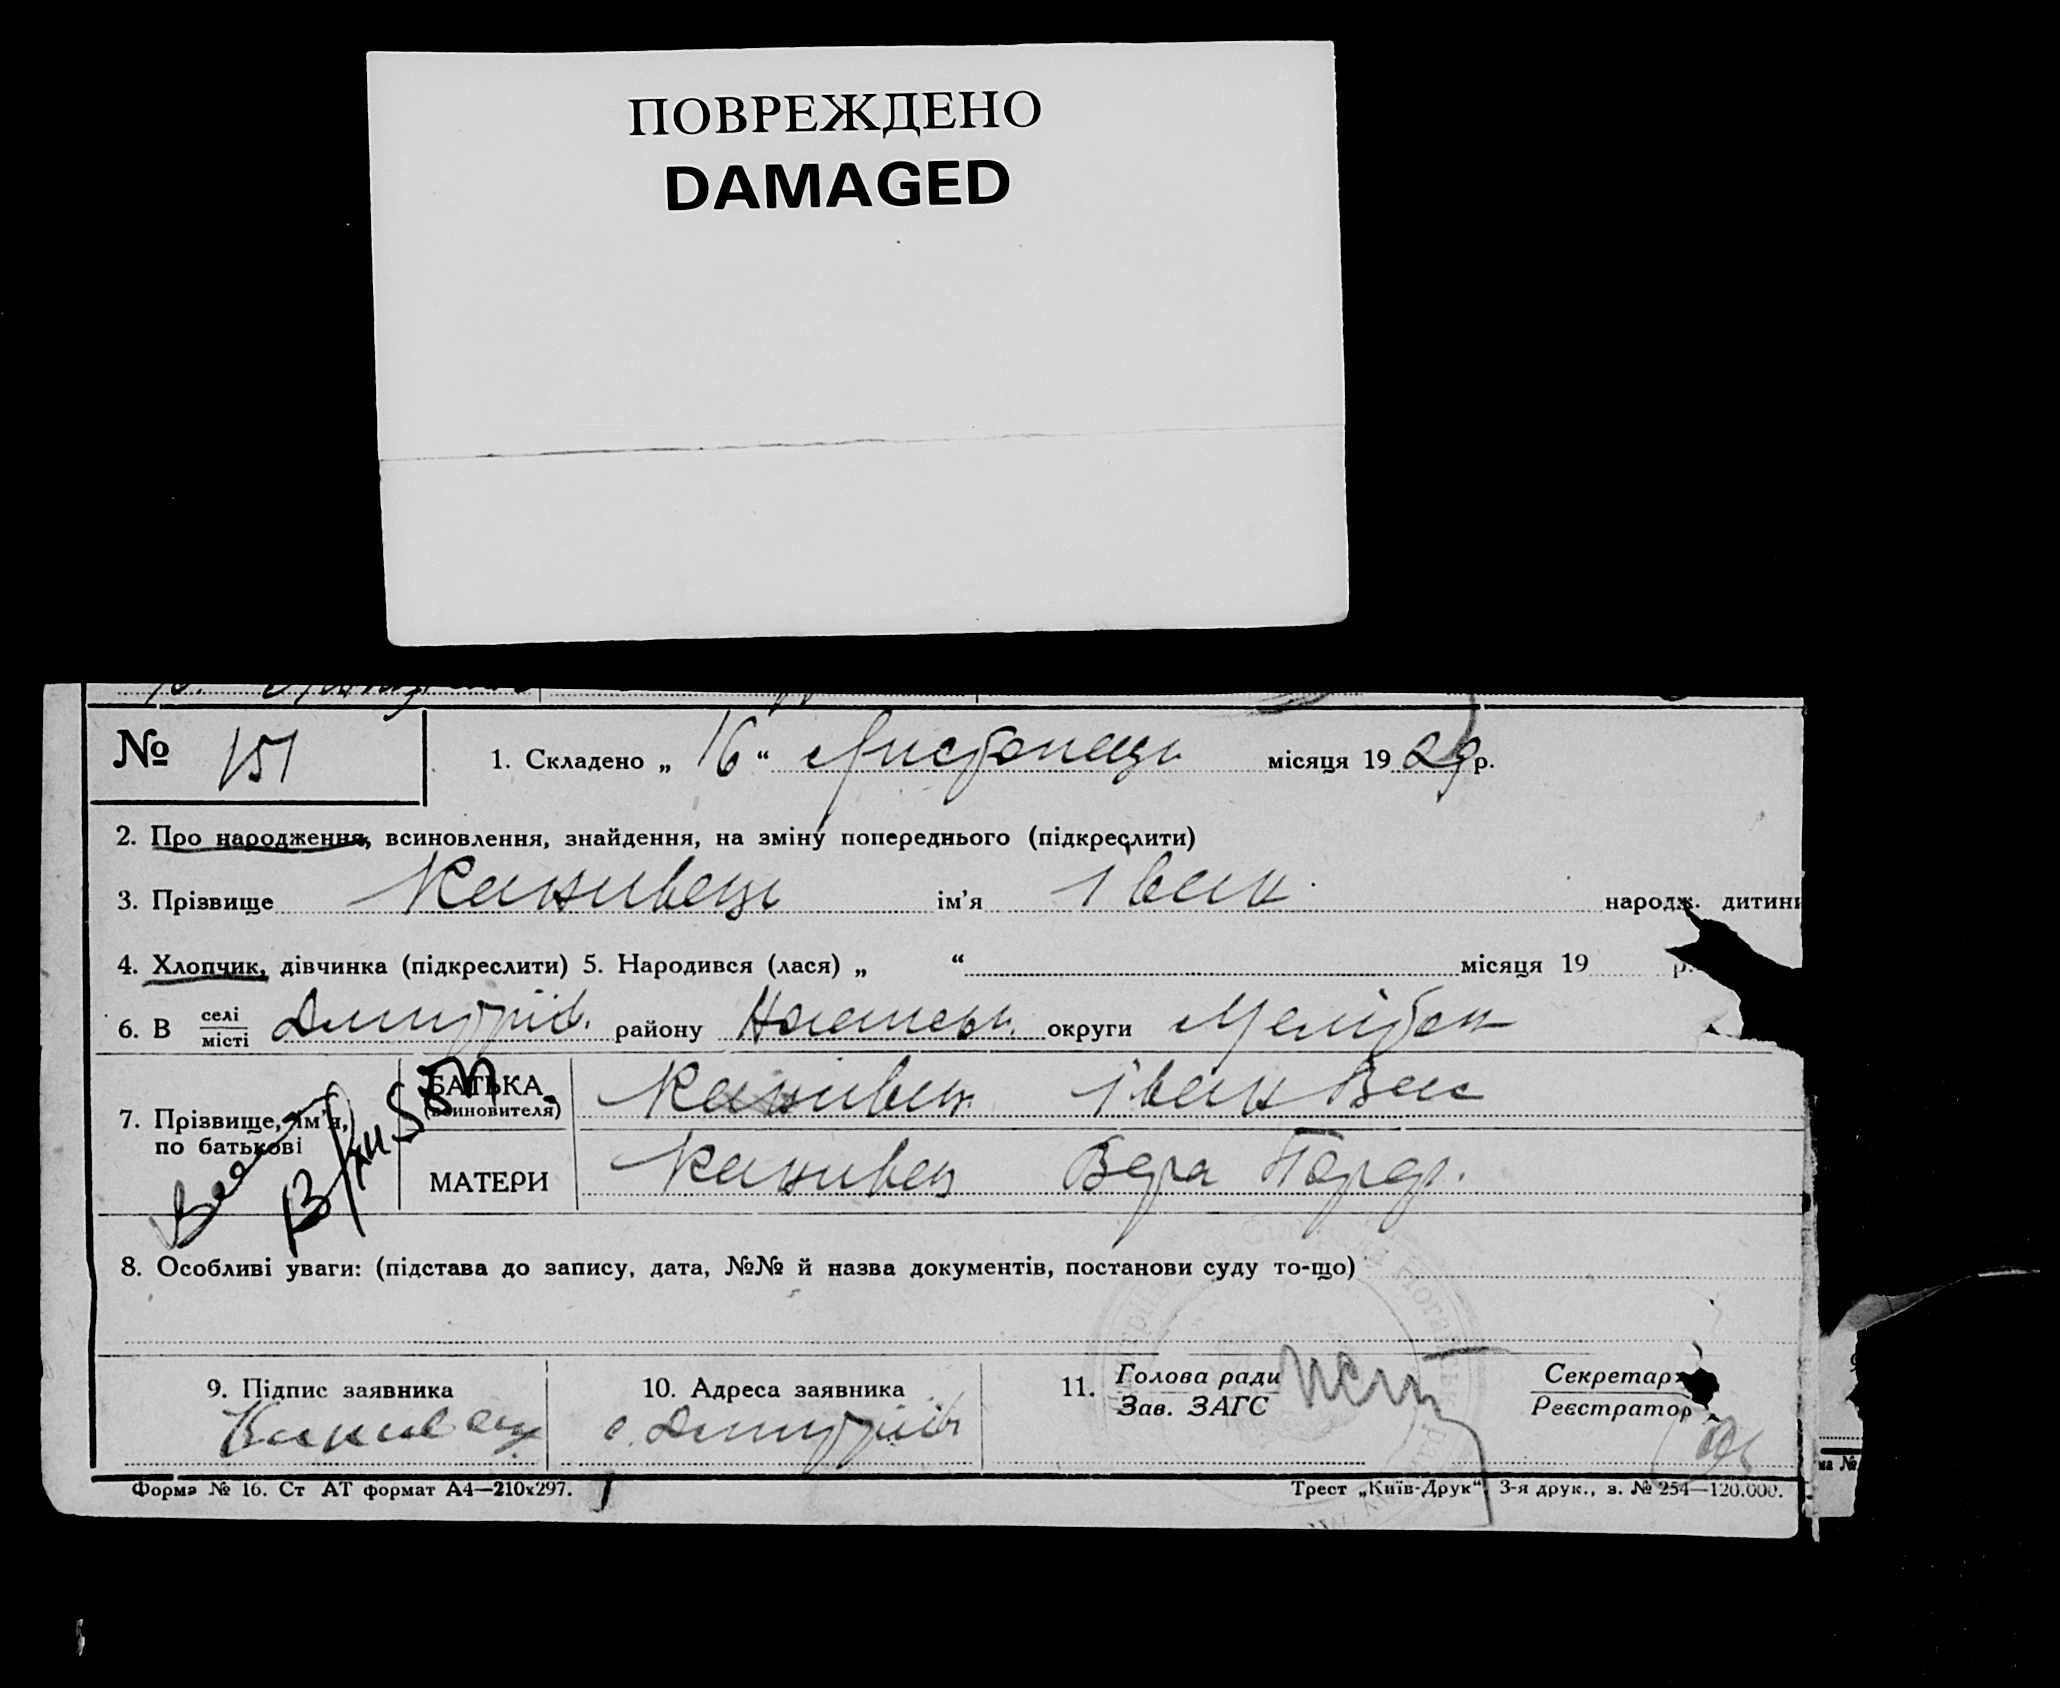 ПОВРЕЖДЕНО
DAMAGED
№ 151
1. Складено „ 16 “ Листопада місяця 19 29 р.
2. Про народження, всиновлення, знайдення, на зміну попереднього (підкреслити)
3. Прізвище Канивець ім'я Іван народж. дитини
4. Хлопчик, дівчинка (підкреслити) 5. Народився (лася) „ “ місяця 19 р.
6. В селі місті Дмитрів. району округи Мелітоп
7. Прізвище, ім'я, по батькові
БАТЬКА (всиновителя) Канивец Іван Вас
МАТЕРИ Канивец Вера
8. Особливі уваги: (підстава до запису, дата, №№ й назва документів, постанови суду то-що)
9. Підпис заявника
Канивец
10. Адреса заявника
с. Дмитрів
11. Голова ради
Зав. ЗАГС
Секретар
Реєстратор
Форма № 16. Ст АТ формат А4—210х297.
Трест „Київ-Друк“, 3-я друк., з. № 254—120.000.